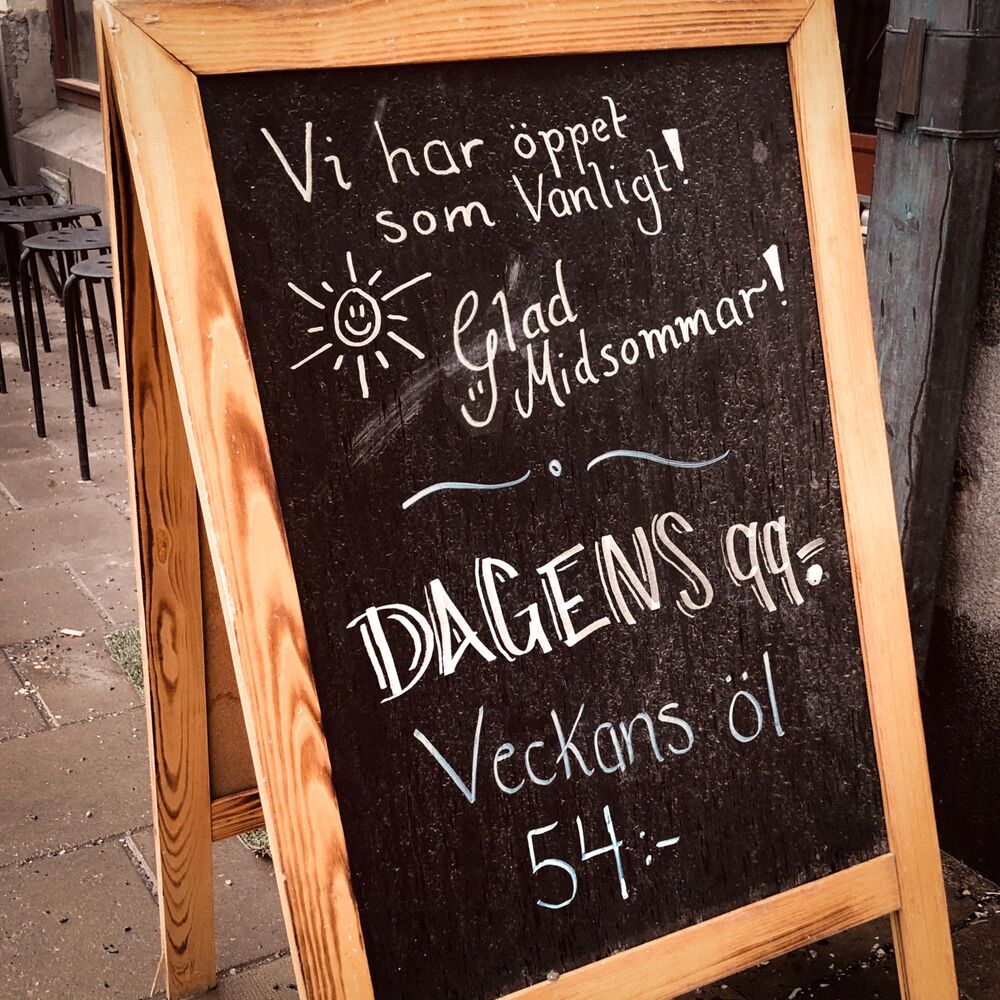 Vi har öppet
som Vanligt!
Glad
Midsommar!
DAGENS 99:-
Veckans öl
54:-